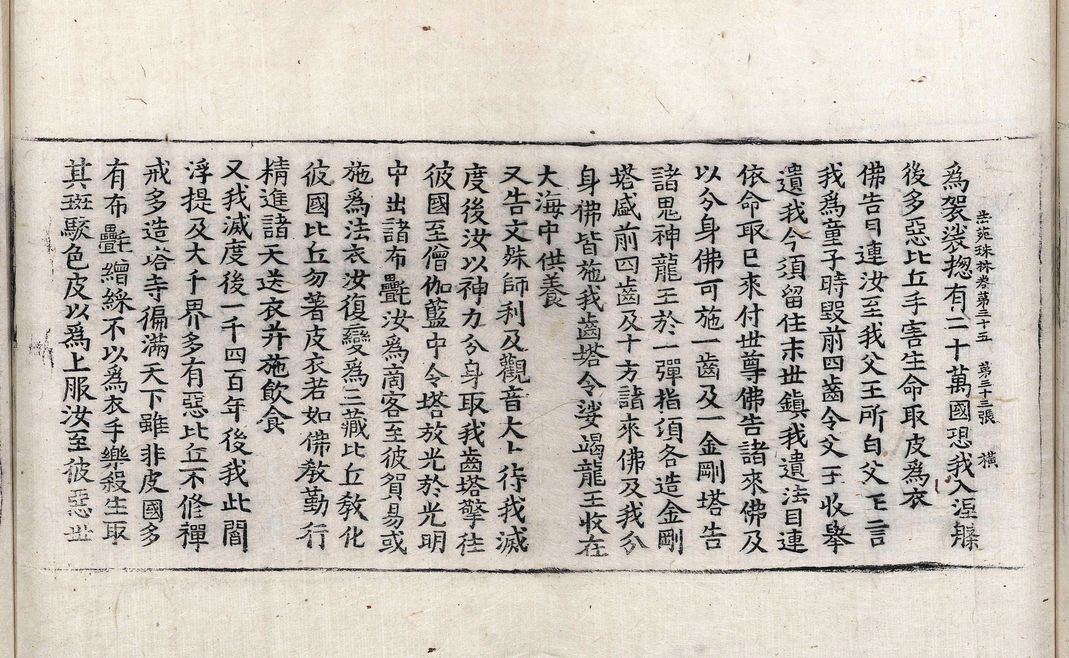 法苑珠林卷第三十五 第三十三張 橫
爲袈裟揔有二十萬國恐我入涅槃
後多惡比丘手害生命取皮爲衣
佛告目連汝至我父王所白父王言
我爲童子時毀前四齒令父王收舉
遺我今須留住末世鎭我遺法目連
依命取已來付世尊佛告諸來佛及
以分身佛可施一齒及一金剛塔告
諸鬼神龍王於一彈指頃各造金剛
塔盛前四齒及十方諸來佛及我分
身佛皆施我齒塔令娑竭龍王收在
大海中供養
又告文殊師利及觀音大士待我滅
度後汝以神力分身取我齒塔擎往
彼國至僧伽藍中令塔放光於光明
中出諸布㲲汝爲啇客至彼貿易或
施爲法衣汝復變爲三藏比丘教化
彼國比丘勿著皮衣若如佛教勤行
精進諸天送衣并施飲食
又我滅度後一千四百年後我此閻
浮提及大千界多有惡比丘不修禪
戒多造塔寺徧滿天下雖非皮國多
有布㲲繒綵不以爲衣手樂殺生取
其斑駮色皮以爲上服汝至彼惡世